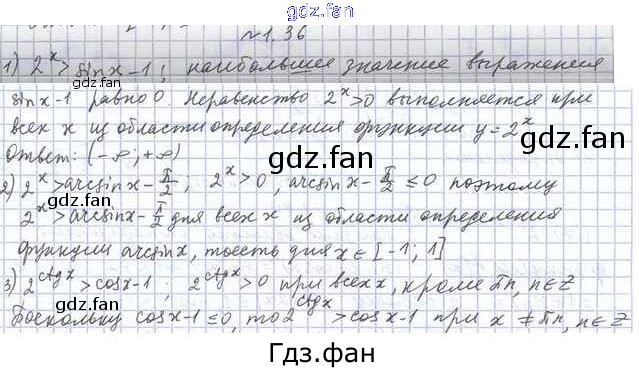 gdz.fan
№1.36
1) 2^x > sin x - 1; наибольшее значение выражения
sin x-1 равно 0. Неравенство 2^x>0 выполняется при
всех x из области определения функции y=2^x
gdz.fan
Ответ: (-∞; +∞)
gdz.fan
2) 2^x > arcsin x - π/2; 2^x > 0, arcsin x - π/2 ≤ 0 поэтому
2^x > arcsin x - π/2 для всех x из области определения
gdz.fan
функции arcsin x, то есть для x ∈ [-1; 1]
3) 2^ctgx > cos x - 1; 2^ctgx > 0 при всех x, кроме πn, n∈Z
gdz.fan
gdz.fan
Поскольку cos x-1 ≤ 0, то 2^ctgx > cos x-1 при x ≠ πn, n∈Z
Гдз.фан